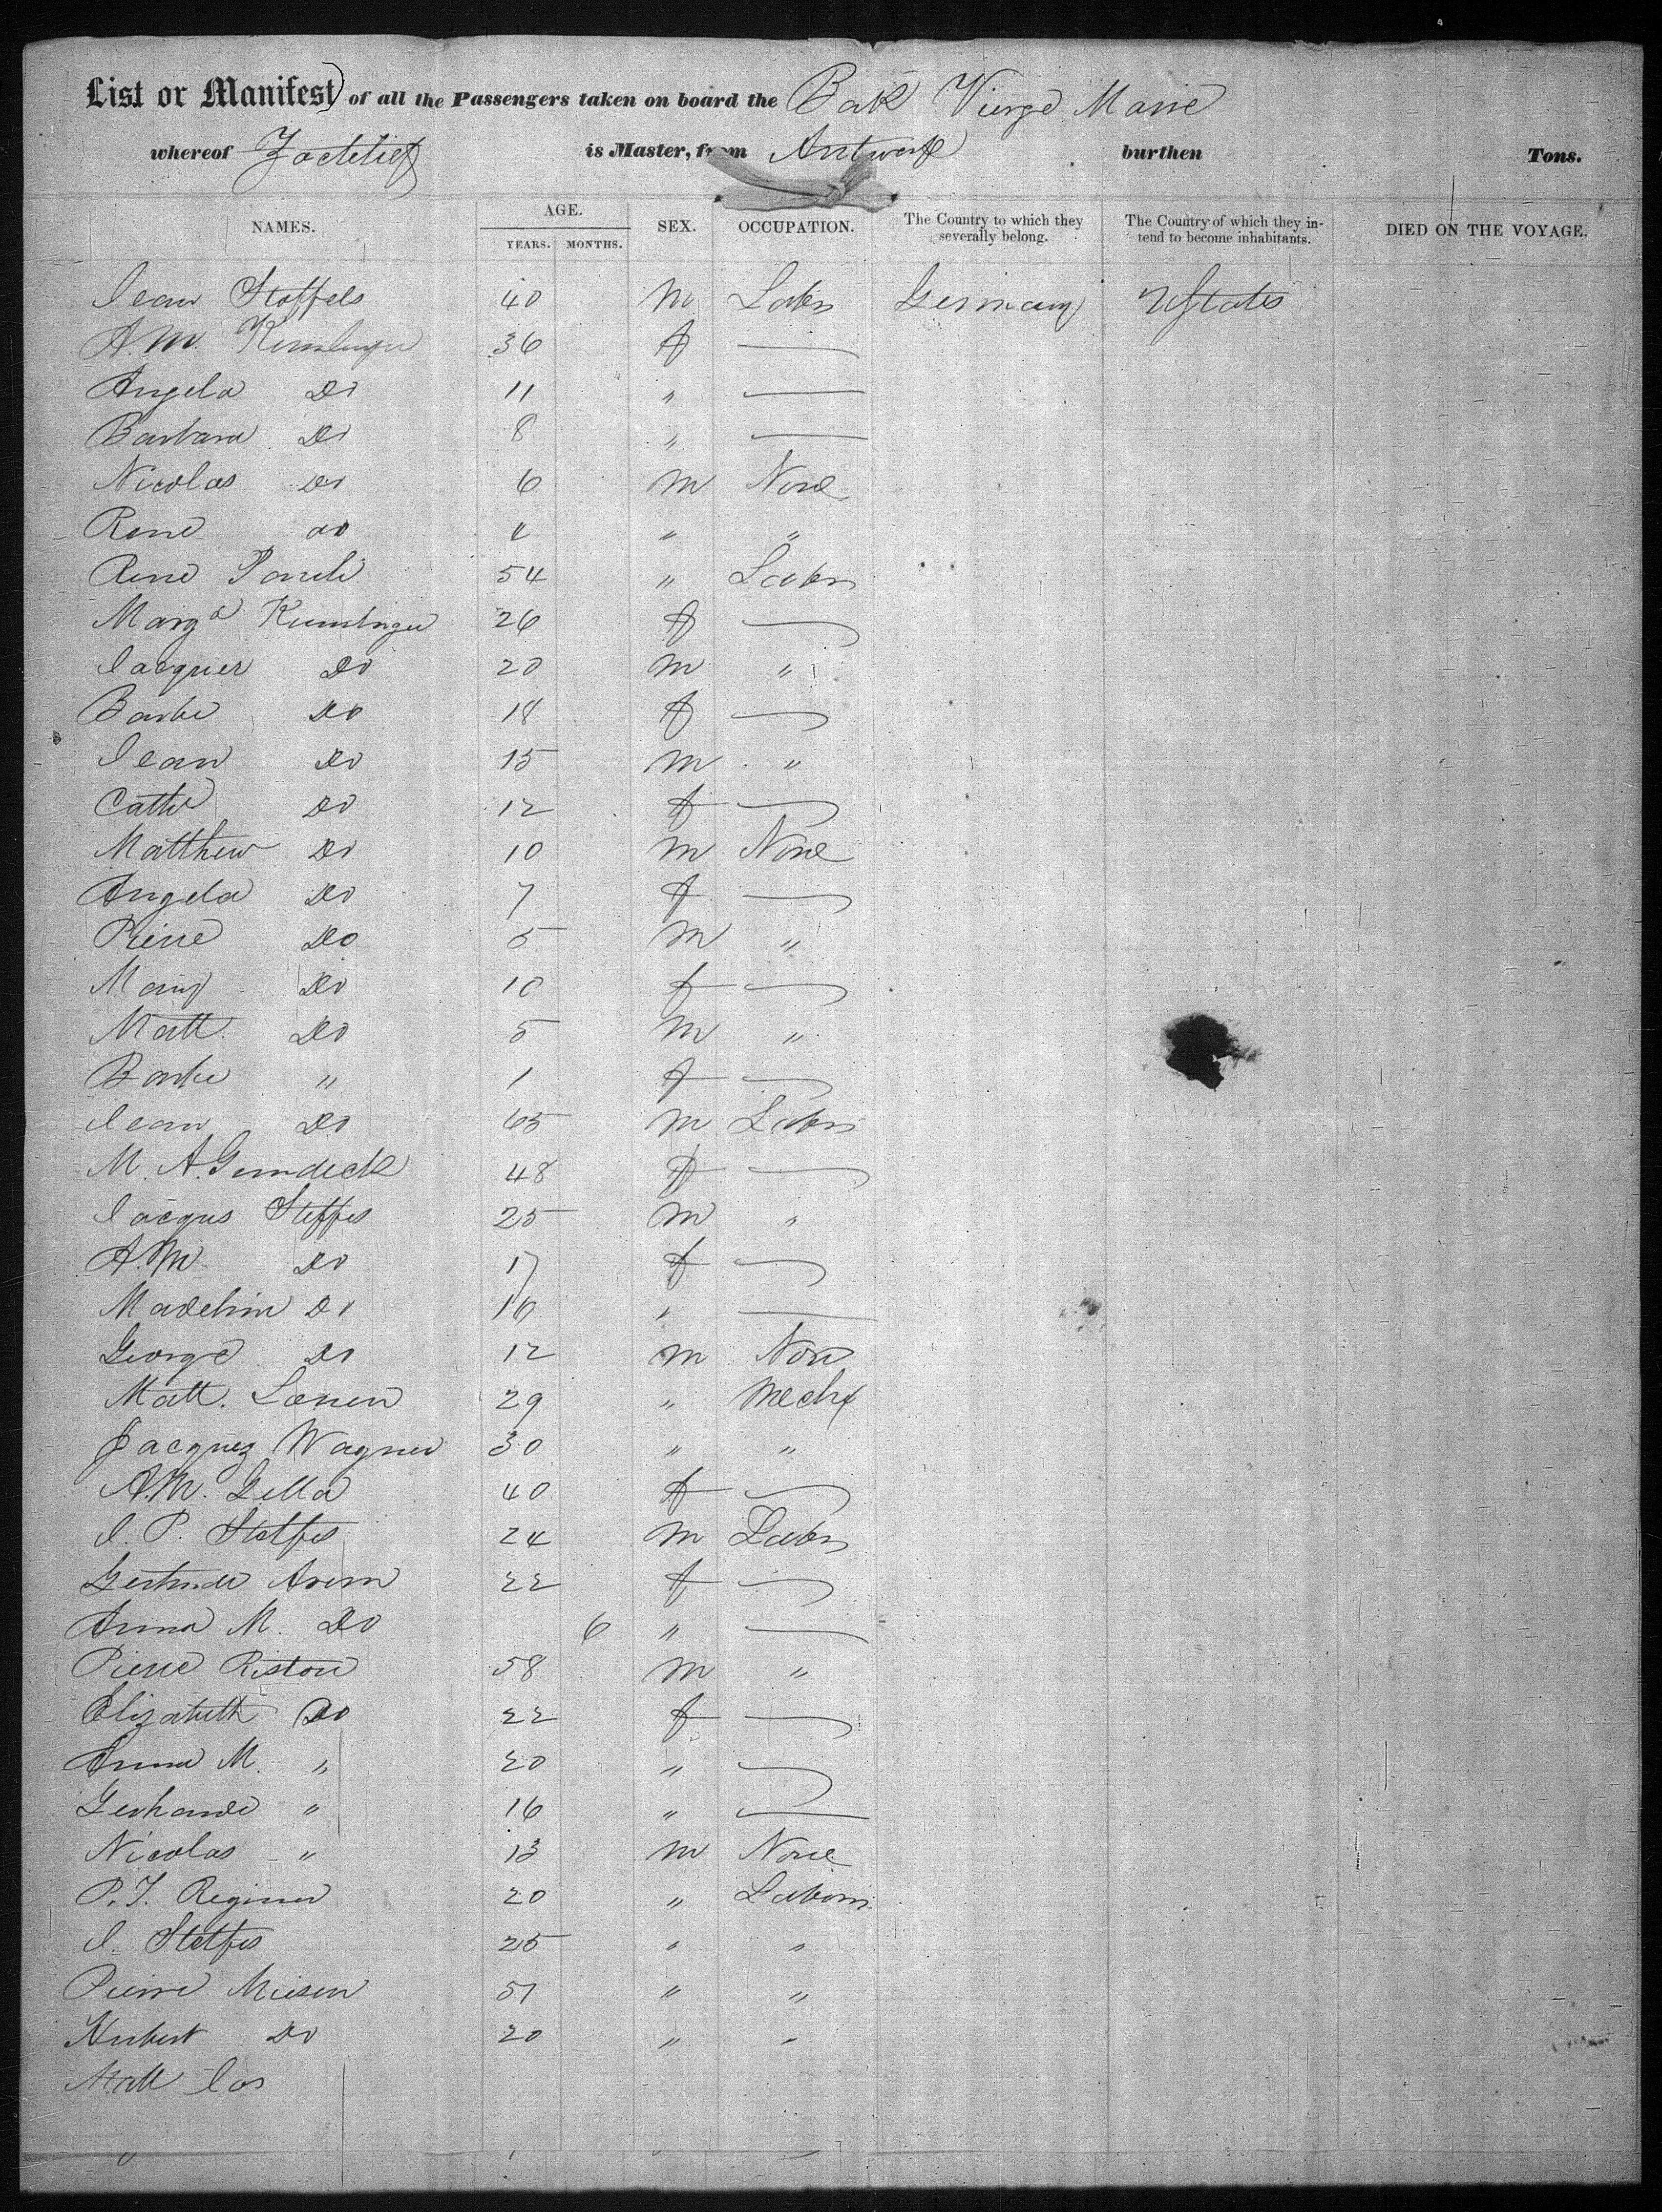 List or Manifest of all the Passengers taken on board the Bark Vierge Marie
whereof is Master, from Antwerp burthen Tons.
NAMES. AGE. YEARS. MONTHS. SEX. OCCUPATION. The Country to which they severally belong. The Country of which they intend to become inhabitants. DIED ON THE VOYAGE.
Jean Stoffels 40 M Labr Germany UStates
A.M. 36 f —
Angela Do 11 " —
Barbara Do 8 " —
Nicolas Do 6 M None
Rene do " "
Rene 54 " Labr
Marga 26 f —
Jacques Do 20 M "
Barbe Do 18 f —
Jean Do 15 M "
Cathe Do 12 f —
Matthew Do 10 M None
Angela Do 7 f —
Pierre Do 5 M "
Marg Do 10 f —
Matt. Do 5 M "
Barbe " 1 f —
Jean Do 65 M Labr
M. A. Gundeck 48 f —
Jacqus Steffes 25 M "
A.M. Do 17 f —
Madelein Do 16 " —
George Do 12 M None
Matt. 29 " Mech
Jacques Wagner 30 " "
A.M. Zella 40 f —
J. P. Steffes 24 M Labr
Gertrude 22 f —
Anna M. Do 6 " —
Pierre Riston 58 M "
Elizabeth Do 22 f —
Anna M. " 20 " —
Gerharde " 16 " —
Nicolas " 13 M None
P. J. Reginer 20 " Laborr
J. Steffes 25 " "
Pierre Meisen 51 " "
Hubert Do 20 " "
Matt Jos